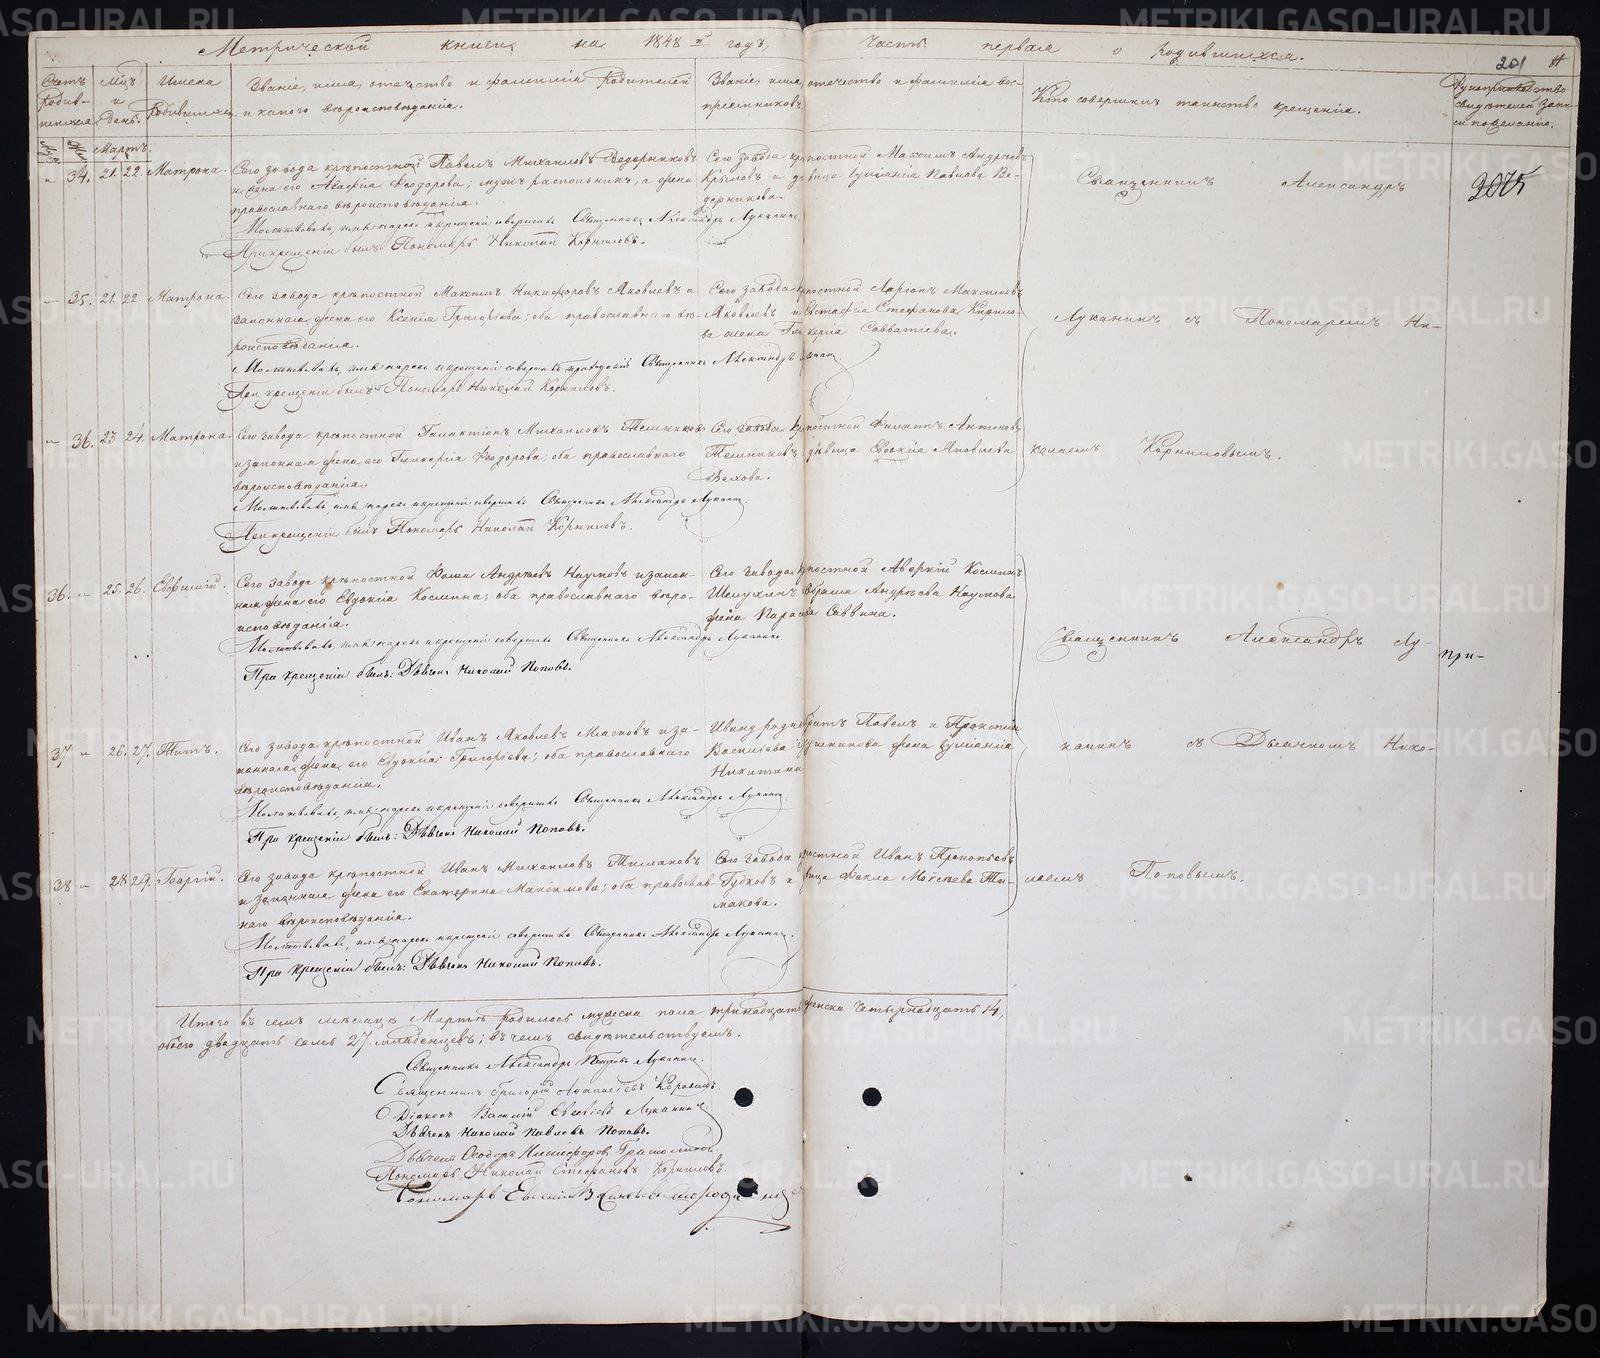 Метрической книги на 1848й годъ, часть первая о родившихся.
201
Счетъ родившихся.
Мцъ и день.
Имена родившихся.
Званіе, имя, отечество и фамилія родителей и какого вѣроисповѣданія.
Званіе, имя, отечество и фамилія воспріемниковъ.
Кто совершилъ таинство крещенія.
Рукоприкладство свидѣтелей записи по желанію.
Мартъ.
34. 21. 22. Матрона.
Сего завода крѣпостной Павелъ Михаиловъ Ведерниковъ
и жена его Агафія Ѳеодорова; мужъ раскольникъ, а жена
православнаго вѣроисповѣданія.
Сего завода крѣпостной Максимъ Андрѣевъ
Крыловъ и девица Іуліанія Павлова Ве-
дерникова.
Молитвовалъ, имя нарекъ и крещеніе совершилъ Священникъ Александръ Луканинъ.
При крещеніи былъ Пономарь Николай Корниловъ.
Священникъ Александръ
2075
35. 21. 22. Матрона.
Сего завода крѣпостной Максимъ Никифоровъ Яковлевъ и
законная жена его Ксенія Григорьева; оба православнаго вѣ-
роисповѣданія.
Сего завода крѣпостной Ларіонъ Максимовъ
Яковлевъ и Евстафія Стефанова Кирило-
ва жена Гликерія Савватіева.
Молитвовалъ, имя нарекъ и крещеніе совершилъ Священникъ Александръ
При крещеніи былъ Пономарь Николай Корниловъ.
Луканинъ съ Пономаремъ Ни-
36. 23 24. Матрона.
Сего завода крѣпостной Галактіонъ Михаиловъ Телминковъ
и законная жена его Гликерія Ѳеодорова; оба православнаго
вѣроисповѣданія.
Сего завода крѣпостной Филиппъ Антоновъ
девица Евдокія Яковлева
Молитвовалъ, имя нарекъ и крещеніе совершилъ Священникъ Александръ Луканинъ
При крещеніи былъ Пономарь Николай Корниловъ.
колаемъ Корниловымъ.
36. 25. 26. Евфимій.
Сего завода крѣпостной Ѳома Андрѣевъ Наумовъ и закон-
ная жена его Евдокія Космина; оба православнаго вѣро-
исповѣданія.
Сего завода крѣпостной Аверкій Косминъ
Шелухинъ Андрѣева Наумова
жена Параскева Саввина.
Молитвовалъ, имя нарекъ и крещеніе совершилъ Священникъ Александръ Луканинъ.
При крещеніи былъ: Дьячекъ Николай Поповъ.
Священникъ Александръ Лу-
при-
37 26. 27. Титъ.
Сего завода крѣпостной Иванъ Яковлевъ Мягковъ и за-
конная жена его Евдокія Григорьева; оба православнаго
вѣроисповѣданія.
Ивану родный братъ Павелъ и Прокопія
Василіева жена Іуліанія
Никитина
Молитвовалъ, имя нарекъ и крещеніе совершилъ Священникъ Александръ Луканинъ.
При крещеніи былъ: Дьячекъ Николай Поповъ.
канинъ съ Дьячкомъ Нико-
38 28 29. Георгій.
Сего завода крѣпостной Иванъ Михаиловъ Тимаковъ
и законная жена его Екатерина Максимова; оба православ-
наго вѣроисповѣданія.
Сего завода крѣпостной Иванъ Прокопьевъ
Гудковъ и девица Ѳекла Моисѣева Ти-
макова.
Молитвовалъ, имя нарекъ и крещеніе совершилъ Священникъ Александръ Луканинъ.
При крещеніи былъ: Дьячекъ Николай Поповъ.
лаемъ Поповымъ.
Итого въ семъ мѣсяцѣ Мартѣ родилось мужеска пола тринадцать женска четырнадцать 14,
обоего двадцать семь 27. младенцевъ; въ чемъ свидѣтельствуемъ.
Священникъ Александръ Петровъ Луканинъ.
Священникъ Григорій Коровинъ.
Діаконъ Василій Луканинъ
Дьячекъ Николай Павловъ Поповъ.
Дьячекъ Ѳеодоръ Никифоровъ
Пономарь Николай Стефановъ Корниловъ
Пономарь Евгеній
METRIKI.GASO-URAL.RU